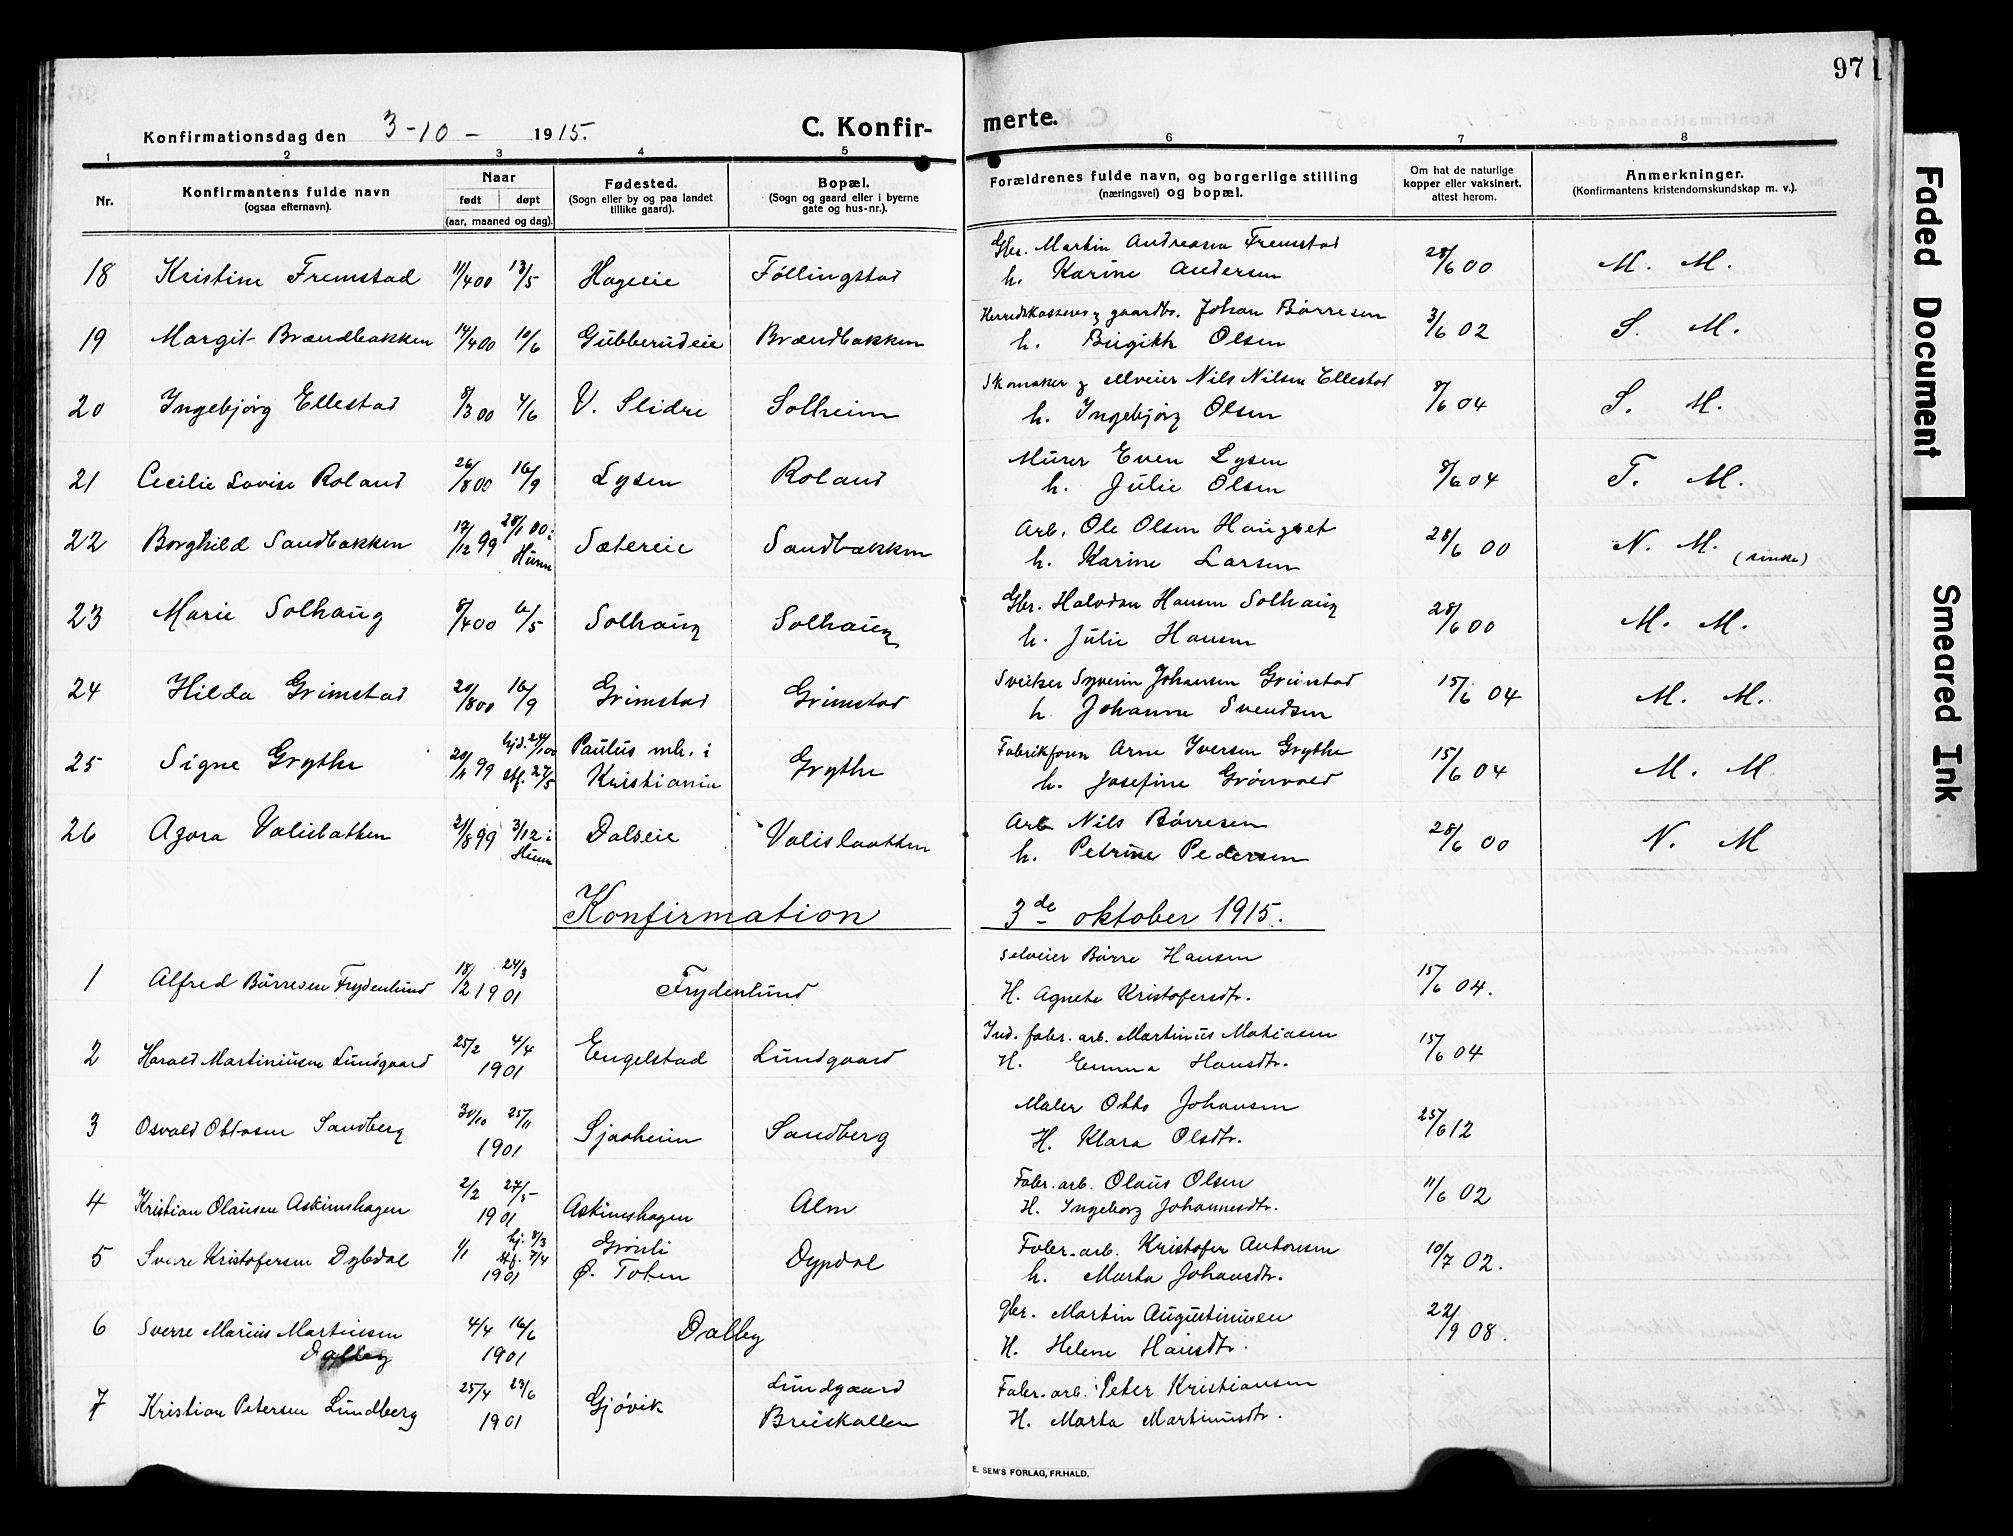 97
Konfirmationsdag den 3-10- 1915.
C. Konfir-
merte.
1 2 3 4 5 6 7 8
Nr.
Konfirmantens fulde navn
(ogsaa efternavn).
Naar
født døpt
(aar, maaned og dag).
Fødested.
(Sogn eller by og paa landet
tillike gaard).
Bopæl.
(Sogn og gaard eller i byerne
gate og hus-nr.).
Forældrenes fulde navn, og borgerlige stilling
(næringsvei) og bopæl.
Om hat de naturlige
kopper eller vaksinert.
attest herom.
Anmerkninger.
(Konfirmantens kristendomskundskap m. v.).
Gbr. Martin Andreasen Fremstad
18 Kristine Fremstad 11/4 00 13/5 Hageeie Föllingstad 28/6 00 M. M.
h. Karine Andersen
Herredskasserer g gaardbr. Johan Börresen
19 Margit Brændbakken 14/4 00 10/6 Gubberudeie Brændbakken 3/6 02 S. M.
h. Birgitte Olsen
Skomaker g selveier Nils Nilsen Ellestad
20 Ingebjörg Ellestad 8/3 00 4/6 V. Slidre Solheim 8/6 04 S. M.
h. Ingebjörg Olsen
Murer Even Lysen
21 Cecilie Lovise Roland 26/8 00 16/9 Lysen Roland 8/6 04 T. M.
h. Julie Olsen
Arb. Ole Olsen Haugset
22 Borghild Sandbakken 17/12 99 28/1 00 i Hunn Sætereie Sandbakken 28/6 00 N. M.
h. Karine Larsen
Gbr. Halvdan Hansen Solhaug
23 Marie Solhaug 8/4 00 6/5 Solhaug Solhaug 28/6 00 M. M.
h. Julie Hansen
Sveiser Syverin Johansen Grimstad
24 Hilda Grimstad 20/8 00 16/9 Grimstad Grimstad 15/6 04 M. M.
h. Johanne Svendsen
Fabrikform Arne Iversen Grythe
25 Signe Grythe 99 hjd. stf. 27/5 Paulus mh. i Kristiania Grythe 15/6 04 M. M
h. Josefine Grönvold
Arb Nils Börresen
26 Agora Valislatten 21/8 99 3/12 i Hunn Dalseie Valislaatten 28/6 00 N. M
h. Petrine Pedersen
Konfirmation 3de oktober 1915.
selveier Börre Hansen
1 Alfred Börresen Frydenlund 18/2 24/3 1901 Frydenlund 15/6 04.
H. Agnete Kristofersdtr.
Ind. fabr. arb. Martinus Matiasen
2 Harald Martiniusen Lundgaard 25/2 4/4 1901 Engelstad Lundgaard 15/6 04
H. Emma Hansdtr.
Maler Otto Johansen
3 Osvald Ottosen Sandberg 30/10 25/11 1901 Sjaaheim Sandberg 25/6 12
H. Klara Olsdtr.
Fabr. arb. Olaus Olsen
4 Kristian Olausen Askimshagen 2/2 27/5 1901 Askimshagen Alm 11/6 02
H. Ingeborg Johannesdtr.
Fabr.-arb. Kristofer Antonsen
5 Sverre Kristofersen Dybdal 1/1 hj. 8/3 stf. 7/4 1901 Grönli Ø. Toten Dypdal 10/7 02.
h. Marta Johansdtr.
gbr. Martin Augustinusen
6 Sverre Marius Martinsen Dalby 4/4 16/6 1901 Dalby 22/9 08.
H. Helene Hansdtr.
Fabr.-arb. Peter Kristiansen
7 Kristian Petersen Lundberg 25/4 23/6 1901 Gjövik Lundgaard Breiskallen
H. Marta Martinusdtr.
E. SEM'S FORLAG, FR.HALD.
Faded Document
Smeared Ink